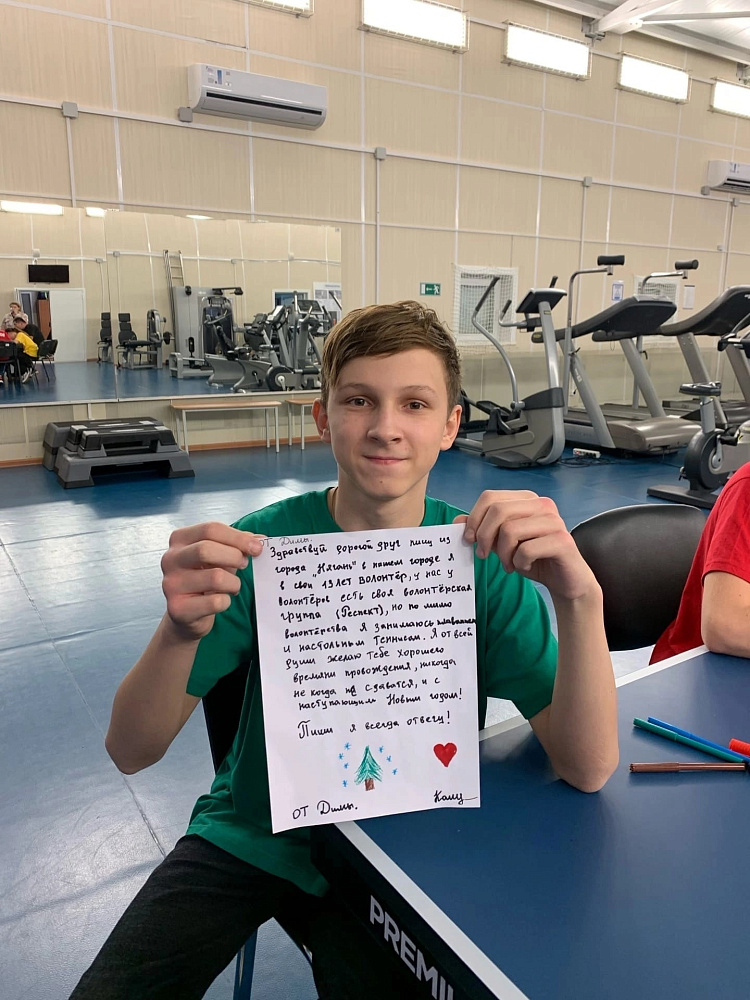 ОТ Димы.
Здравствуй дорогой друг пишу из
города "Нягань" в нашем городе я
в свои 13 лет волонтёр, у нас у
волонтёров есть своя волонтёрская
группа (Респект), но по мимо
волонтёрства я занимаюсь плаванием
и настольным теннисом. Я от всей
души желаю тебе хорошего
времяни провождения, никогда
не когда не сдаватся, и с
наступающим Новым годом!
Пиши я всегда отвечу!
ОТ Димы.
Кому
PREMI